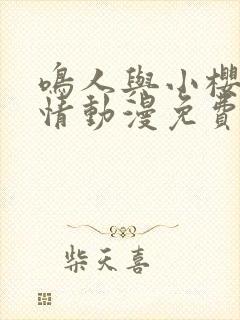 鳴人與小櫻
情動漫免費
柴天喜